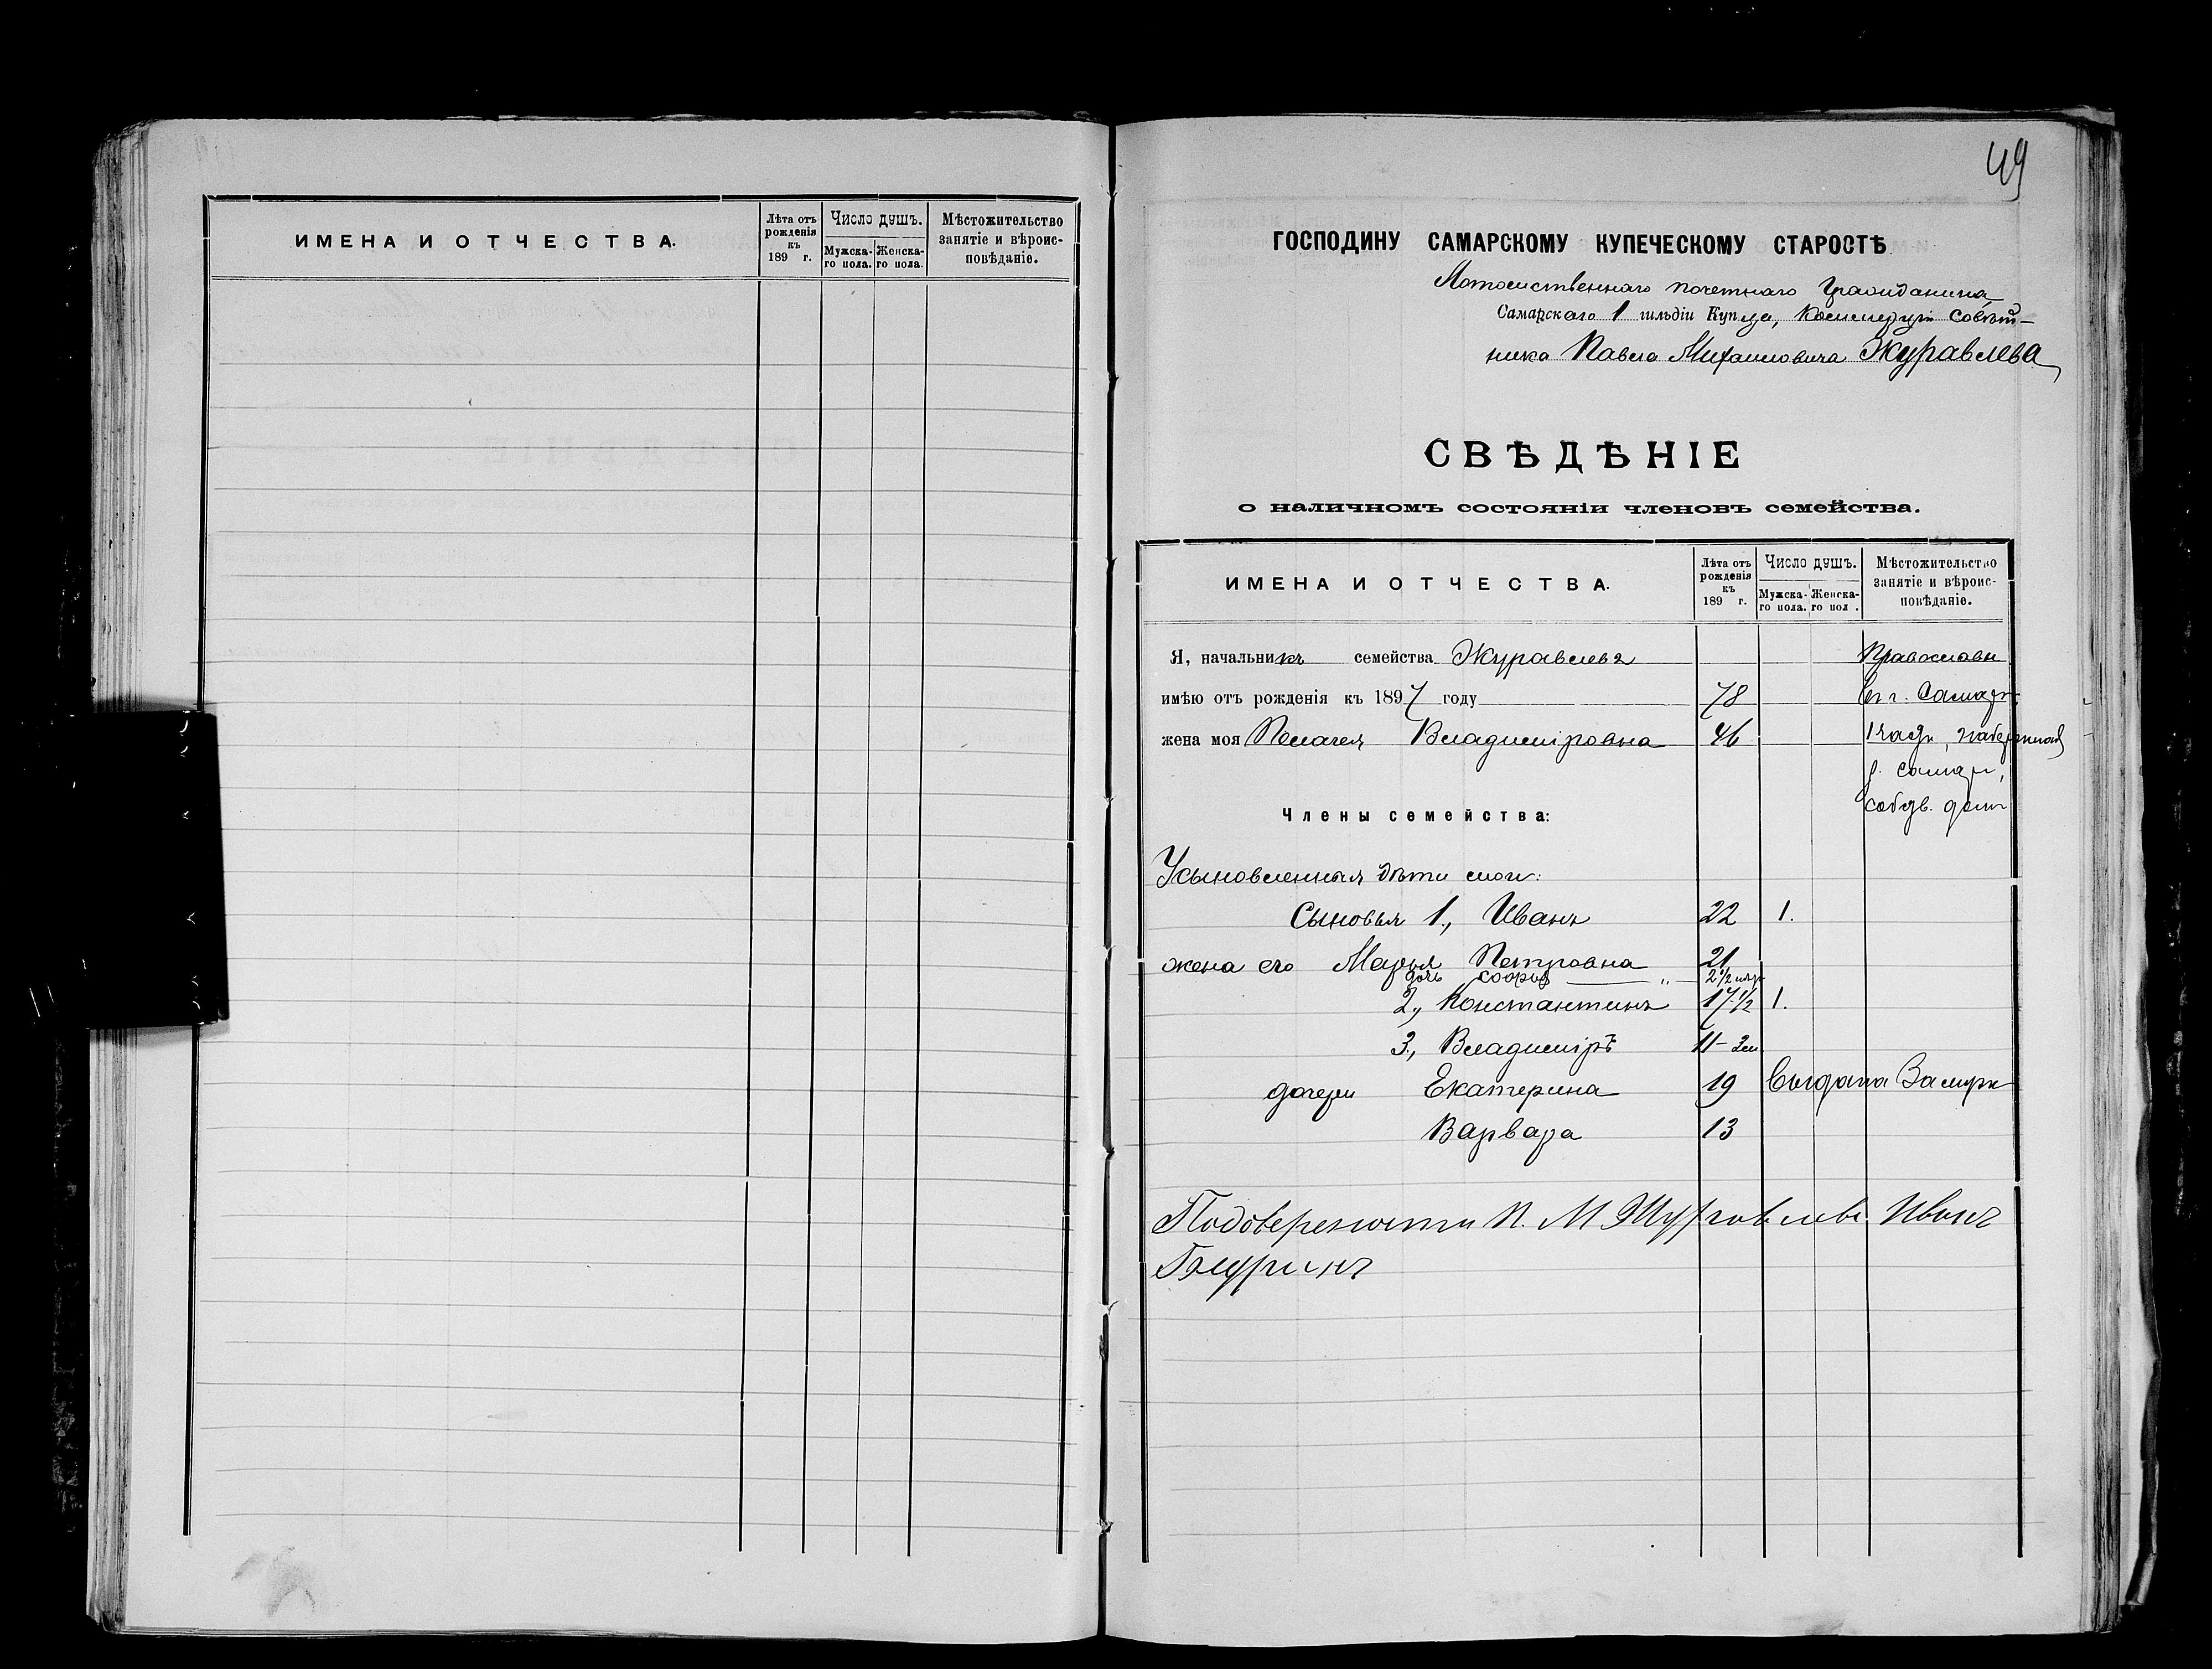 ИМЕНА И ОТЧЕСТВА.
Лѣта отъ рожденія къ 189 г.
Число душъ.
Мужска-го пола.
Женска-го пола.
Мѣстожительство занятіе и вѣроис-повѣданіе.
49
ГОСПОДИНУ САМАРСКОМУ КУПЕЧЕСКОМУ СТАРОСТѢ
Потомственнаго почетнаго Гражданина,
Самарскаго 1 гильдіи Купца, Коммерціи Совѣт-
ника Павла Михаиловича Журавлева
СВѢДѢНІЕ
о наличномъ состояніи членовъ семейства.
ИМЕНА И ОТЧЕСТВА.
Лѣта отъ рожденія къ 189 г.
Число душъ.
Мужска-го пола.
Женска-го пол .
Мѣстожительство занятіе и вѣроис-повѣданіе.
Я, начальникъ семейства Журавлевъ Православн
имѣю отъ рожденія къ 1897 году 78 въ г. Самарѣ
жена моя Пелагея Владиміровна 46 1 части, набережная
р. Самары,
собств. домъ
Члены семейства:
Усыновленныя дѣти мои:
Сыновья 1., Иванъ 22 1.
жена его Марья Петровна 21
дочь Софья „ 2 1/2 мѣс
2., Константинъ 17 1/2 1.
3., Владиміръ 11 – 3м
дочери Екатерина 19 выдана Замужъ
Варвара 13
Подовереноти П. М Журавлева Иванъ